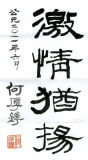 激情猶揚
公元二〇一一年六月
何厚鏵